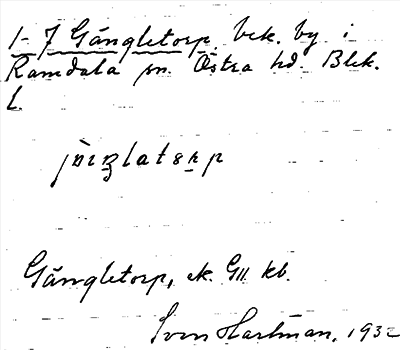 1-7 Gängletorp, bek. by i
Ramdala sn. Östra hd. Blek.
l.
Gängletorp, ek. GII kb.
Sven Hartman, 1932